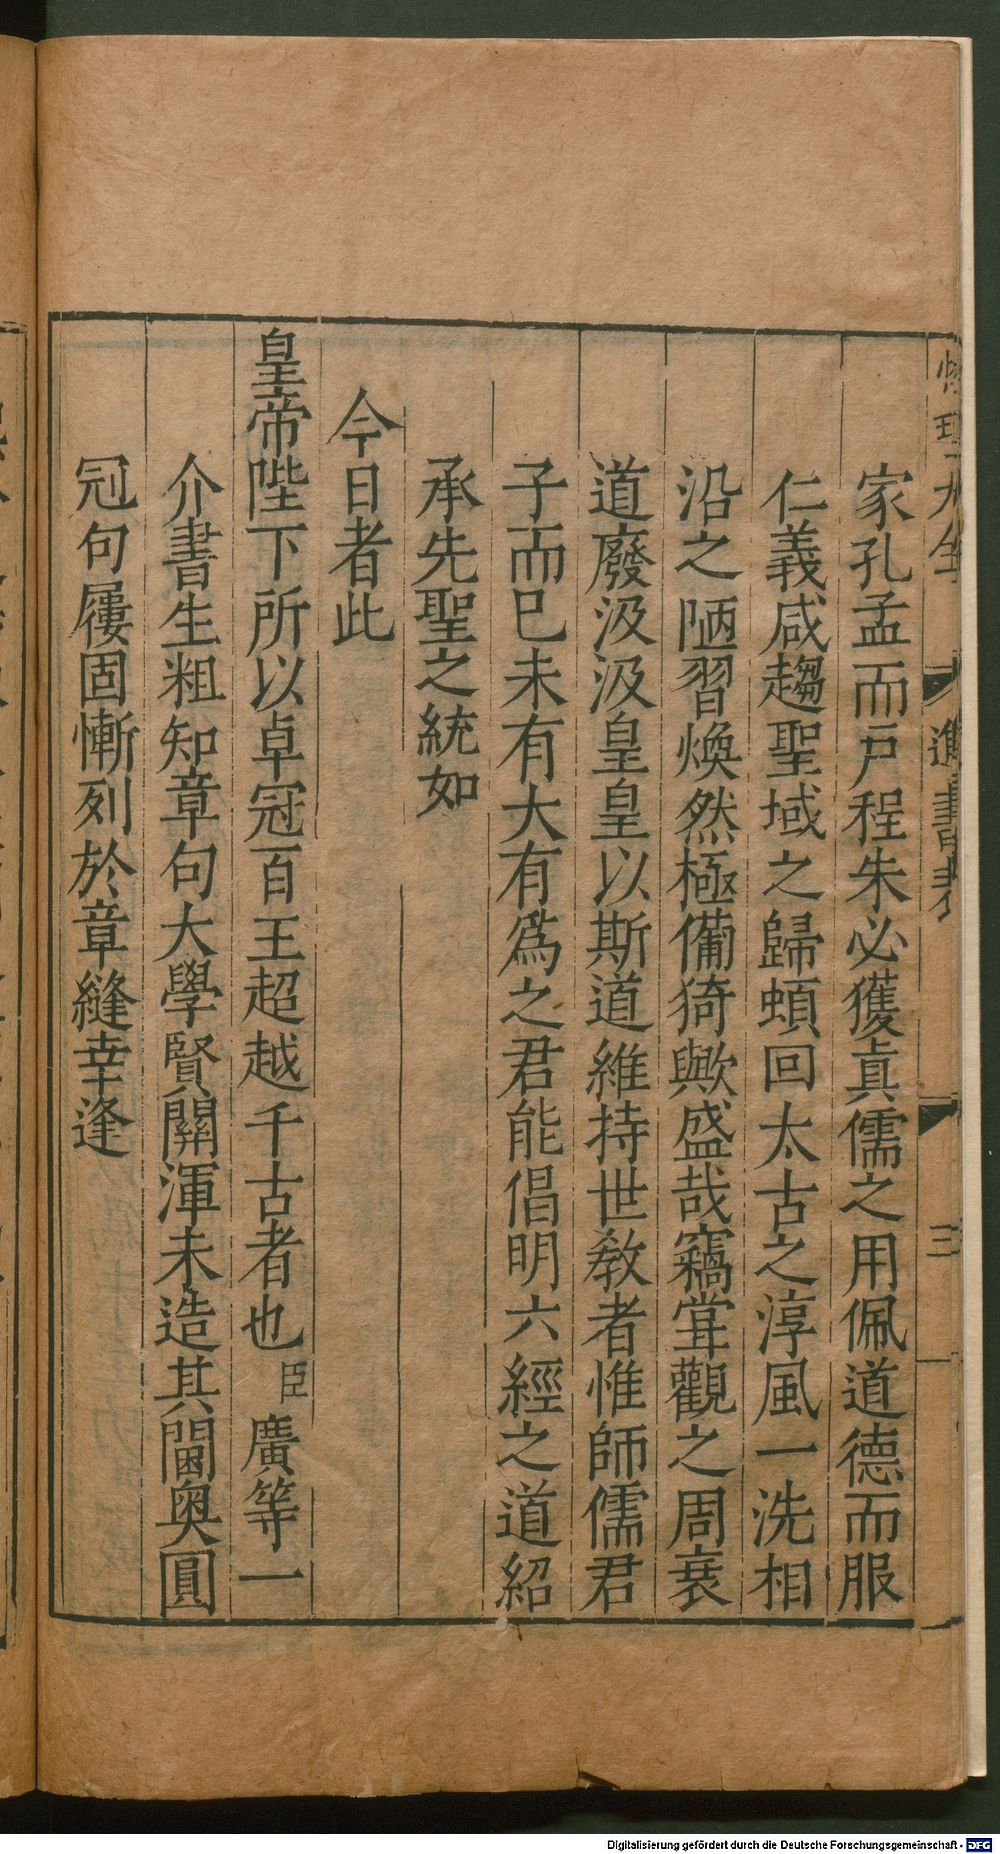 性理大全
進書表
三
家孔孟而戸程朱必獲眞儒之用佩道德而服
仁義咸趨聖域之歸頓回太古之淳風一洗相
沿之陋習煥然極備猗歟盛哉竊甞觀之周衰
道廢汲汲皇皇以斯道維持世敎者惟師儒君
子而巳未有大有爲之君能倡明六經之道紹
承先聖之統如
今日者此
皇帝陛下所以卓冠百王超越千古者也臣廣等一
介書生粗知章句大學賢關渾未造其閫奥圓
冠句屨固慚列於章縫幸逢
Digitalisierung gefördert durch die Deutsche Forschungsgemeinschaft - DFG